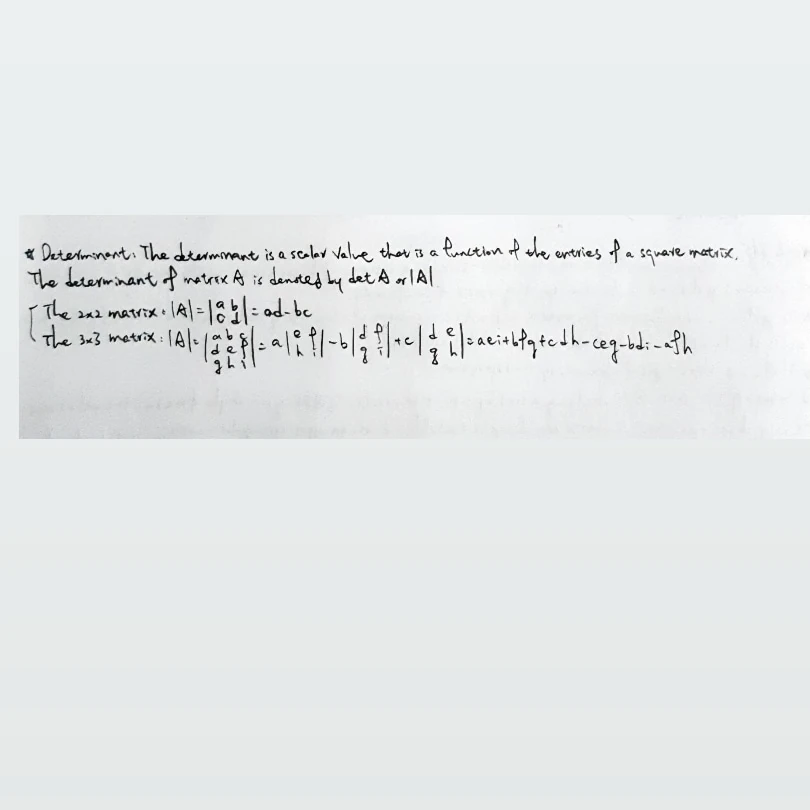 * Determinant: The determinant is a scalar value that is a function of the entries of a square matrix.
The determinant of matrix A is denoted by det A or |A|
{ The 2x2 matrix: |A| = |a b; c d| = ad-bc
The 3x3 matrix: |A| = |a b c; d e f; g h i| = a|e f; h i| - b|d f; g i| + c|d e; g h| = aei+bfg+cdh-ceg-bdi-afh